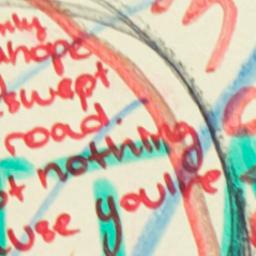 nly
hope
swept
road.
ot nothing
use you're